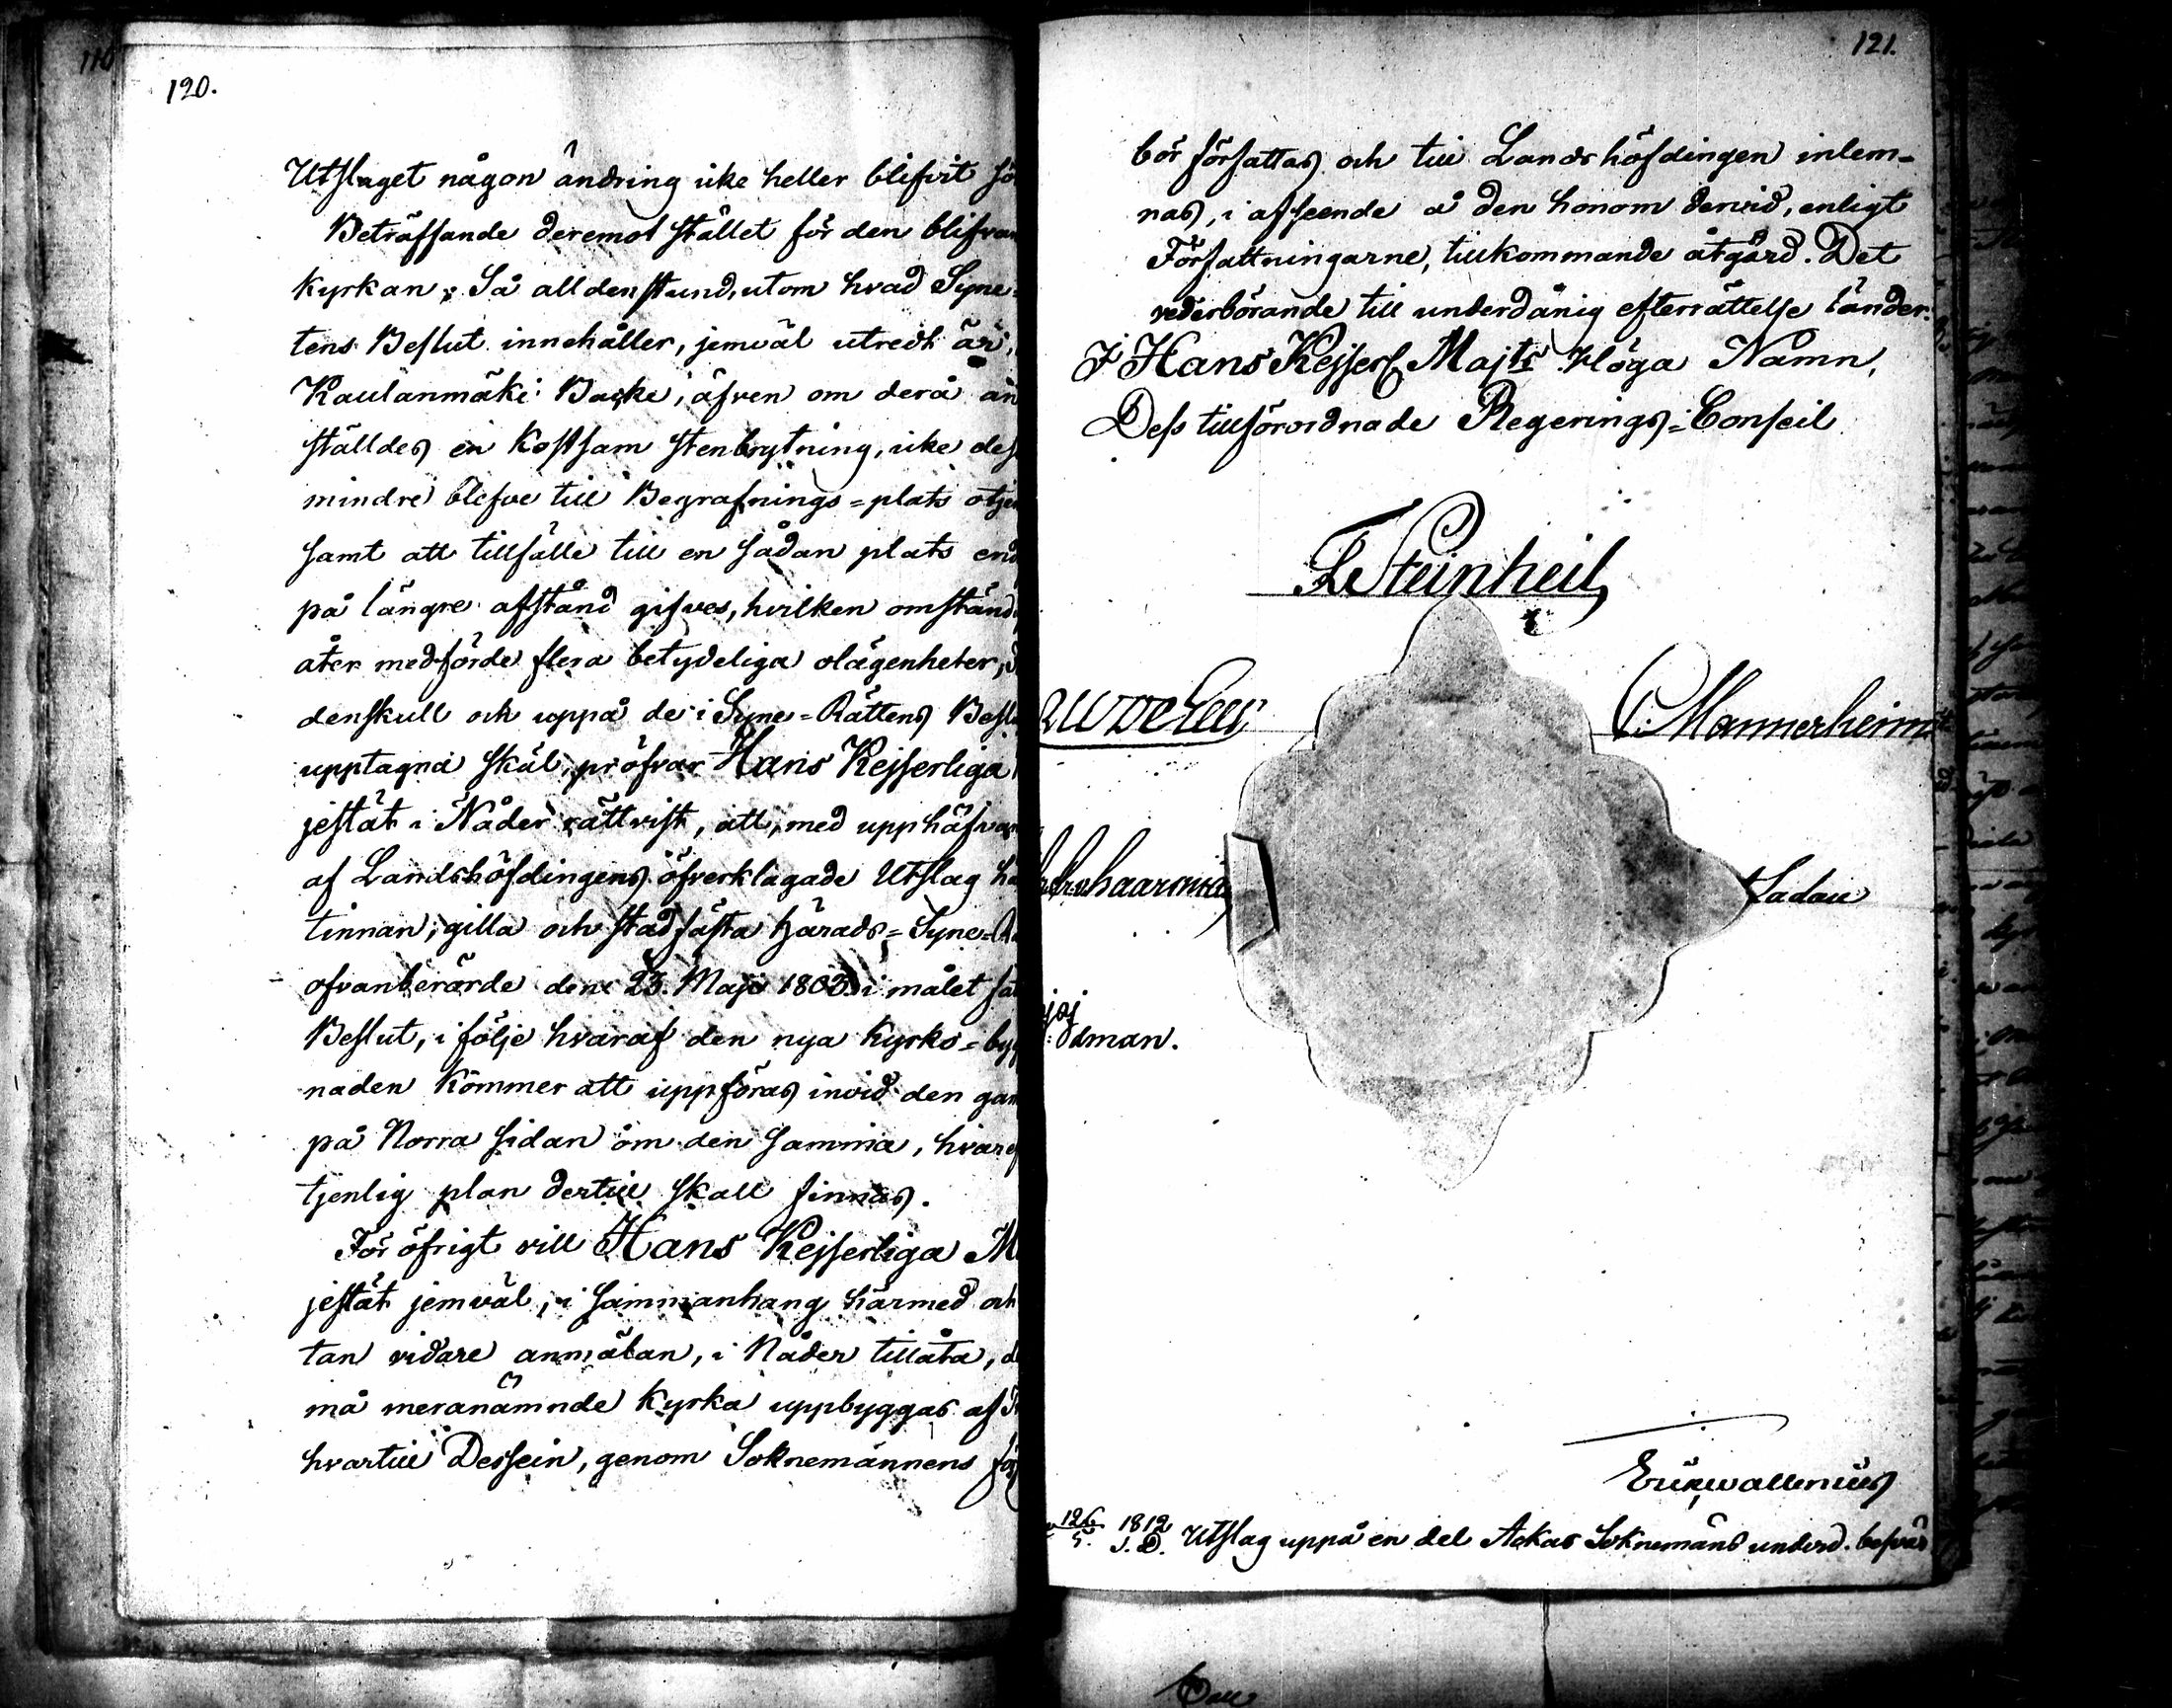 120.
Utslaget någon ändring icke heller blifvit sö
Beträffande deremot stället för den blifvan
kyrkan; Så alldenstund, utom hvad Syne-
tens Beslut innehåller, jemväl utredt är,
Kaulanmäki Backe, äfven om derå an
ställdes en kostsam stenbrytning, icke des
mindre blefve till Begrafnings=plats otjen
samt att tillfälle till en sådan plats end
på längre afstånd gifves, hvilken omständ
åter medförde flera betydeliga olägenheter,
denskull och uppå de i Syne=Rättens Beslu
upptagna skäl, pröfvar Hans Kejserliga
jestät i Nåder rättvist, att, med upphäfvan
af Landshöfdingens öfverklagade Utslag hä
tinnan, gilla och stadfästa Härads=Syne=Rä
ofvanberörde den 23 Maji 1803 i målet fat
Beslut, i följe hvaraf den nya Kyrko=byg
naden kommer att uppföras invid den gam
på Norra sidan om den samma, hvaref
tjenlig plan dertill skall finnas.
För öfrigt vill Hans Kejserliga M
jestät jemväl, i sammanhang härmed och
tan vidare anmälan, i Nåder tillåta, d
må meranämnde Kyrka uppbyggas af Tr
hvartill Dessein, genom Soknemännens för
121.
bör författas och till Landshöfdingen inlem-
nas, i afseende å den honom dervid, enligt
Författningarne, tillkommande åtgärd. Det
vederbörande till underdånig efterrättelse länder.
I Hans Kejserl. Majts Höga Namn,
Dess tillförordnade Regerings=Conseil
Steinheil
C: Mannerheim
Ladau
dman.
Eric Wallenius
126 1812
5. J.D. Utslag uppå en del Ackas Soknemäns underd. besvär